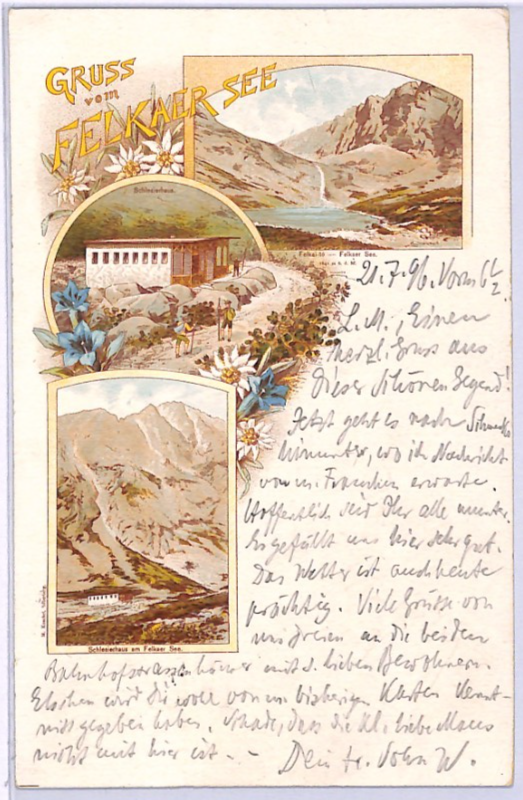 GRUSS
vom
FELKAER SEE
Schlesierhaus.
Felkai-tó — Felkaer See.
21.7.96. Vorm. 6 1/2
L. M., Einen
herzl. Gruss aus
dieser schönen Gegend!
Jetzt geht es nach Schmecks
hinunter, wo ich Nachricht
von m. Frauchen erwarte.
Hoffentlich seid Ihr alle munter.
Es gefällt uns hier sehr gut.
Das Wetter ist auch heute
prächtig. Viele Grüsse von
uns dreien an die beiden
Schlesierhaus am Felkaer See.
Bahnhofstrassenhäuser mit d. lieben Bewohnern.
wird Dir wohl von m. bisherigen Karten Kennt-
niss gegeben haben. Schade, dass die kl. liebe Maus
nicht mit hier ist. –
Dein tr. Sohn W.